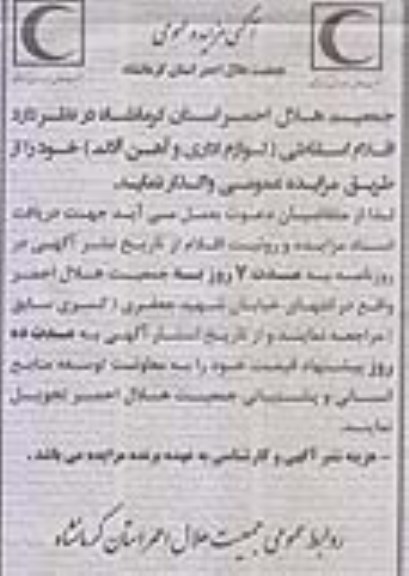 آگهی مزایده عمومی
جمعیت هلال احمر استان کرمانشاه
جمعیت هلال احمر استان کرمانشاه در نظر دارد
اقلام اسقاطی (لوازم اداری و آهن آلات) خود را از
طریق مزایده عمومی واگذار نماید.
لذا از متقاضیان دعوت بعمل می آید جهت دریافت
اسناد مزایده و رویت اقلام از تاریخ نشر آگهی در
روزنامه به مدت ۷ روز به جمعیت هلال احمر
واقع در انتهای خیابان شهید جعفری (کسری سابق
) مراجعه نمایند و از تاریخ انتشار آگهی به مدت ده
روز پیشنهاد قیمت خود را به معاونت توسعه منابع
انسانی و پشتیبانی جمعیت هلال احمر تحویل
نمایند.
- هزینه نشر آگهی و کارشناسی به عهده برنده مزایده می باشد.
روابط عمومی جمعیت هلال احمر استان کرمانشاه